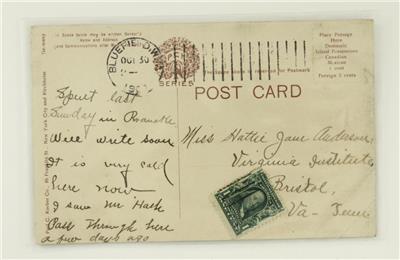 In Some Fable may be written Sender's
Name and Address
BLUEFIELD, W.VA.
OCT 30
SERIES
This space is reserved for Postmark
Place Postage
Here
Domestic
Island Possessions
Canadian
Mexican
1 cent
Foreign 2 cents
POST CARD
Spent last
Sunday in Roanoke
Will write soon
It is very cold
here now
I saw Mr Hash
Pass Through here
a few days ago
Miss Hattie Jane Anderson,
Virginia Institute,
Bristol,
Va - Tenn
New York City and